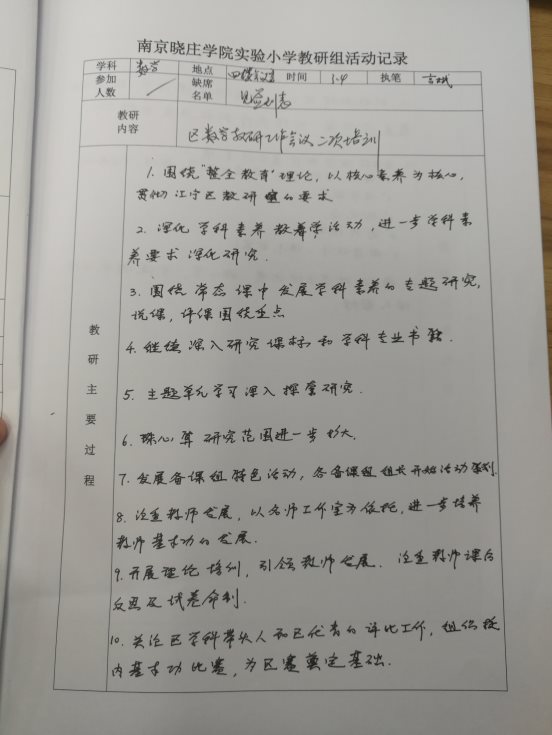 南京晓庄学院实验小学教研组活动记录
学科 数学 地点 时间 3.4 执笔
参加人数 缺席名单 见签到表
教研内容 区数学教研工作会议二次培训
教研主要过程
1. 围绕"整全教育"理论，以核心素养为核心，
贯彻江宁区教研室的要求
2. 深化学科素养教学活动，进一步学科素
养要求深化研究.
3. 围绕常态课中发展学科素养的专题研究，
说课，评课围绕重点
4. 继续深入研究课标和学科专业书籍.
5. 主题单元学习深入探索研究.
6. 珠心算研究范围进一步扩大.
7. 发展备课组特色活动，各备课组组长开始活动策划.
8. 注重教师发展，以名师工作室为依托，进一步培养
教师基本功的发展.
9. 开展理论培训，引领教师发展. 注重教师课后
反思及试卷命制.
10. 关注区学科带头人和区优青的评比工作，组织校
内基本功比赛，为区赛奠定基础.